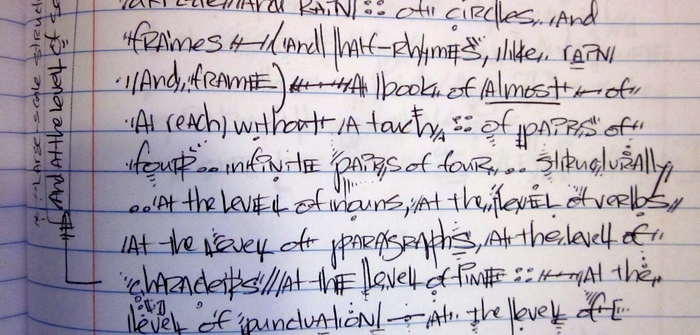 And RAIN :: of CIRCLES.. And
frames (And half-Rhymes, like, rAIN
And, frAME) A book of Almost of
A reach without A touch, :: of PAIRS of
four... infinite PAIRS of four... structurally
... At the level of nouns, At the level of verbs,
At the level of PARAGRAPHS, At the level of
characters// At the level of time :: At the
level of punctuation — At the level of
And At the level of
Large-scale